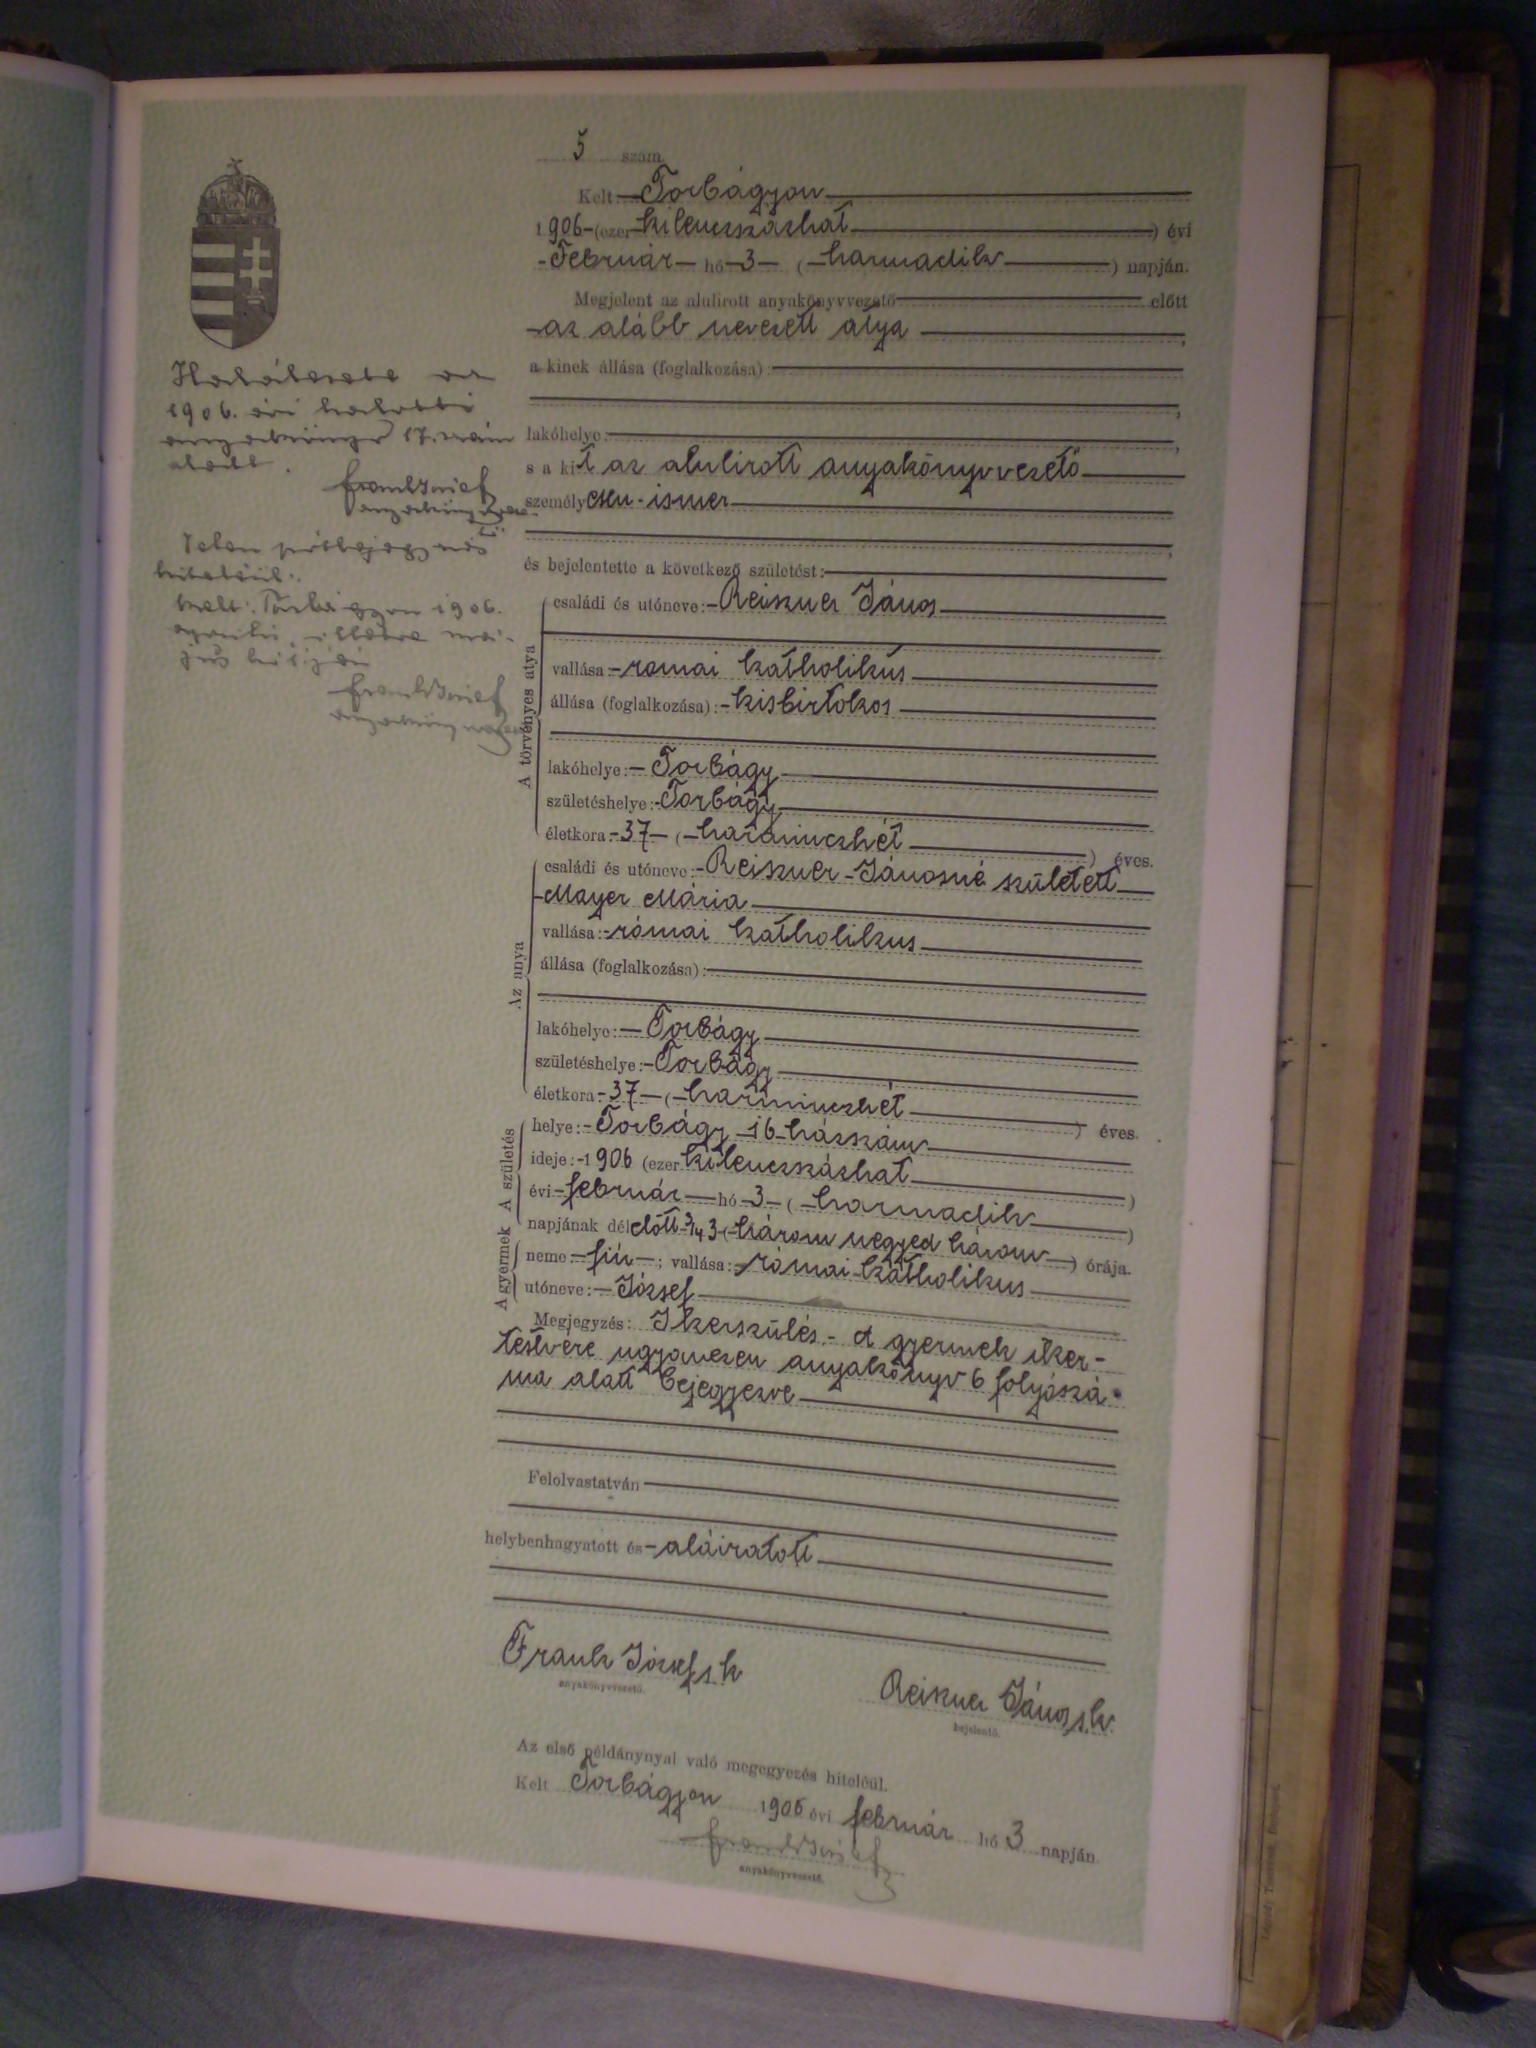 5 szám.
Kelt: Torbágyon
1906 (ezer kilenczszázhat) évi
Február hó 3 (harmadik) napján.
Megjelent az alulirott anyakönyvvezető előtt
az alább nevezett atya,
a kinek állása (foglalkozása):
lakóhelye:
s a kit az alulirott anyakönyvvezető
személyesen ismer
és bejelentette a következő születést:
A törvényes atya
családi és utóneve: Reiszner János
vallása: romai katholikus
állása (foglalkozása): kisbirtokos
lakóhelye: Torbágy
születéshelye: Torbágy
életkora: 37 (harminczhét) éves.
Az anya
családi és utóneve: Reiszner Jánosné született
Mayer Mária
vallása: római katholikus
állása (foglalkozása):
lakóhelye: Torbágy
születéshelye: Torbágy
életkora: 37 (harminczhét) éves.
A születés
helye: Torbágy 16 házszám
ideje: 1906 (ezer kilenczszázhat)
évi február hó 3 (harmadik)
napjának délelőtt 3/4 3 (három negyed három) órája.
A gyermek
neme: fiú; vallása: római katholikus
utóneve: József
Megjegyzés: Ikerszülés - A gyermek iker-
testvére ugyanezen anyakönyv 6 folyószá-
ma alatt bejegyezve
Felolvastatván
helybenhagyatott és aláiratott
Frank József s. k.
anyakönyvvezető.
Reiszner János s. k.
bejelentő.
Az első példánynyal való megegyezés hiteléül.
Kelt Torbágyon 1906 évi február hó 3 napján.
Frank József
anyakönyvvezető.
Halálesete az
1906. évi halotti
anyakönyv 17. szám
alatt.
Frank József
anyakönyvveze-
tő
Jelen
hiteléül.
Kelt: Torbágyon 1906.
április, illetve má-
jus hó 1-jén
Frank József
anyakönyvvezető